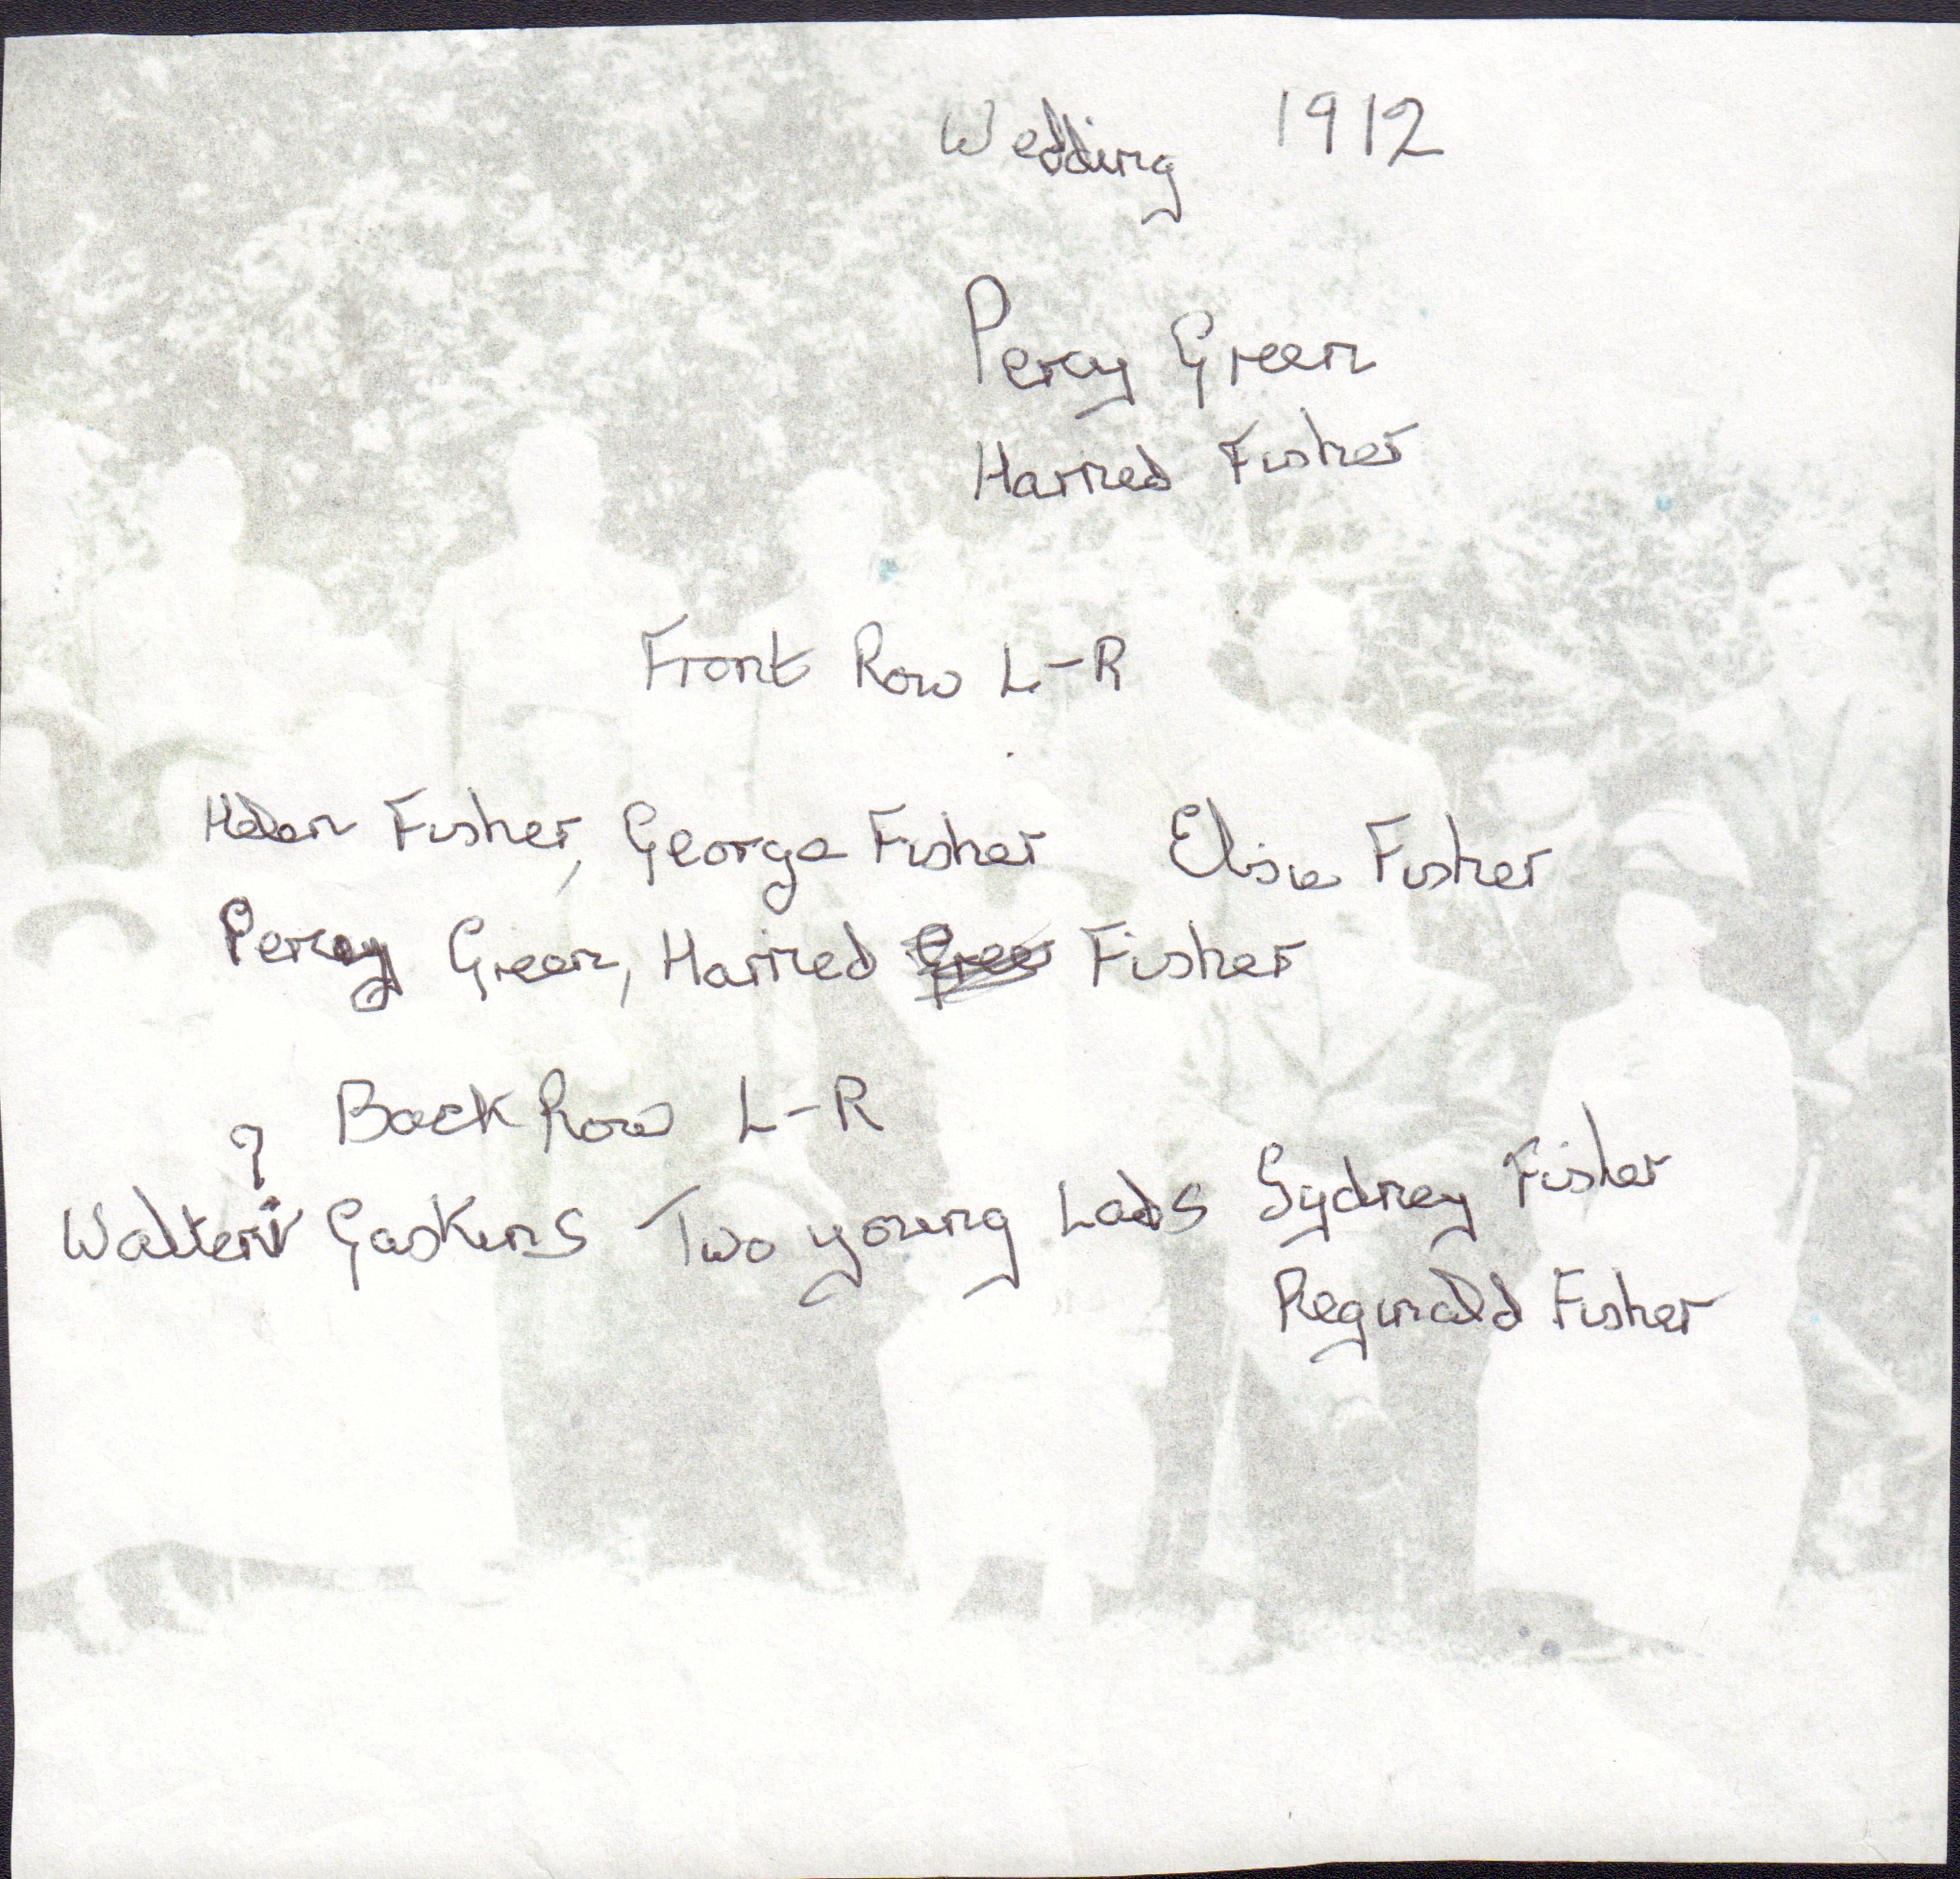 Wedding 1912
Percy Green
Harried Fisher
Front Row L-R
Helen Fisher, George Fisher Elsie Fisher
Percy Green, Harried Green Fisher
Back Row L-R
?
Walter Gaskins Two young Lads Sydney Fisher
Reginald Fisher